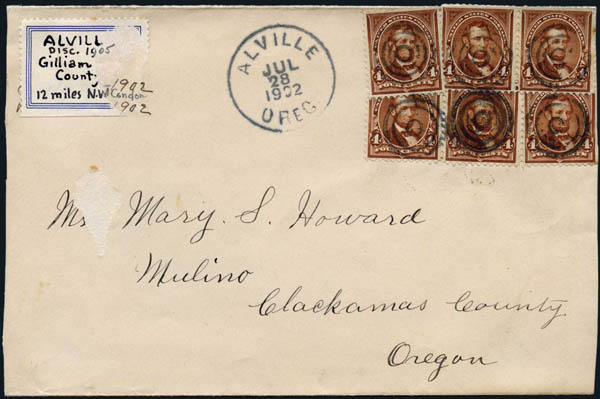 ALVILL
DISC. 1905
Gilliam
County
-1902
12 miles N.W Condon
1902
ALVILLE
JUL
28
1902
OREG.
4 4 4 4 4 4
4 4 4 4 4 4
Mary. S. Howard
Mulino
Clackamas County
Oregon